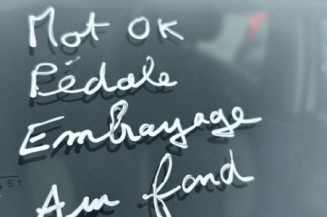 Mot OK
Pédale
Embrayage
Au fond
51